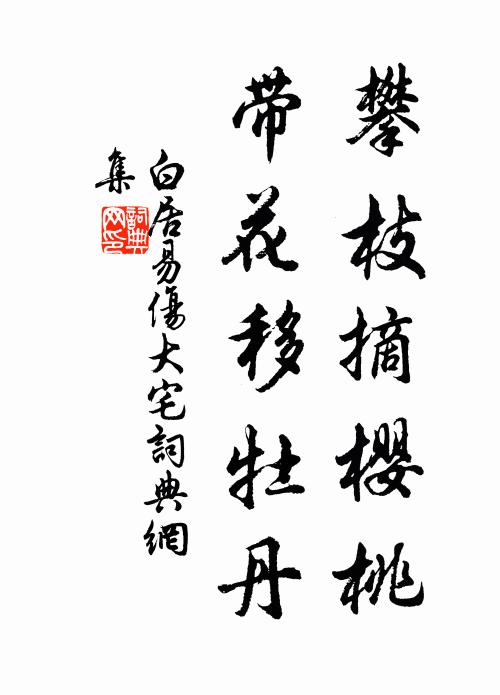 攀枝摘櫻桃
带花移牡丹
白居易傷大宅詞典網
集
詞典
网印